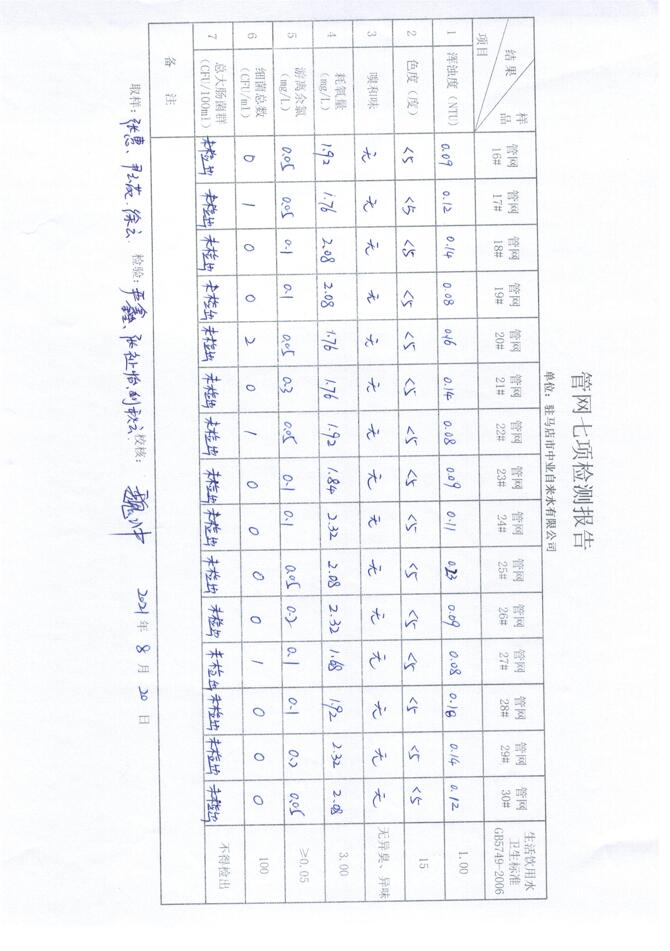 管网七项检测报告
单位：驻马店市中业自来水有限公司
样品 结果 项目 管网16# 管网17# 管网18# 管网19# 管网20# 管网21# 管网22# 管网23# 管网24# 管网25# 管网26# 管网27# 管网28# 管网29# 管网30# 生活饮用水卫生标准GB5749-2006
1 浑浊度（NTU） 0.09 0.12 0.14 0.08 0.16 0.14 0.08 0.09 0.11 0.23 0.09 0.08 0.18 0.14 0.12 1.00
2 色度（度） <5 <5 <5 <5 <5 <5 <5 <5 <5 <5 <5 <5 <5 <5 <5 15
3 嗅和味 无 无 无 无 无 无 无 无 无 无 无 无 无 无 无 无异臭、异味
4 耗氧量（mg/L） 1.92 1.76 2.08 2.08 1.76 1.76 1.92 1.84 2.32 2.08 2.32 1.68 1.92 2.32 2.08 3.00
5 游离余氯（mg/L） 0.05 0.05 0.1 0.1 0.05 0.3 0.05 0.1 0.1 0.05 0.2 0.1 0.1 0.2 0.05 ≥0.05
6 细菌总数（CFU/ml） 0 1 0 0 2 0 1 0 0 0 0 1 0 0 0 100
7 总大肠菌群（CFU/100ml） 未检出 未检出 未检出 未检出 未检出 未检出 未检出 未检出 未检出 未检出 未检出 未检出 未检出 未检出 未检出 不得检出
备 注
取样：张惠、徐云 检验： 校核： 2021年 8月 20日